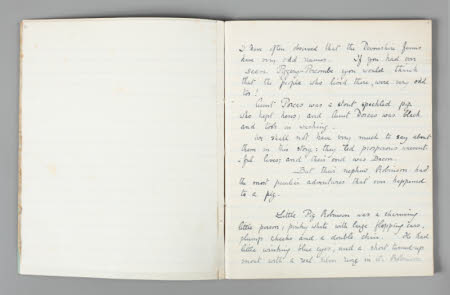 I have often observed that the Devonshire farms
have very odd names. If you had ever
seen Piggery-Porcombe you would think
that the people who lived there, were very odd
too!
Aunt Porcas was a stout speckled pig
who kept hens; and Aunt Dorcas was black
and took in washing.
We shall not have very much to say about
them in this story; they led prosperous uneventful
-ful lives; and their end was Bacon.
But their nephew Robinson had
the most peculiar adventures that ever happened
to a pig.
Little Pig Robinson was a charming
little person; pinky white with large flopping ears,
plump cheeks and a double chin. He had
little winking blue eyes, and a short turned up
snout with a real silver ring in it. Robinson